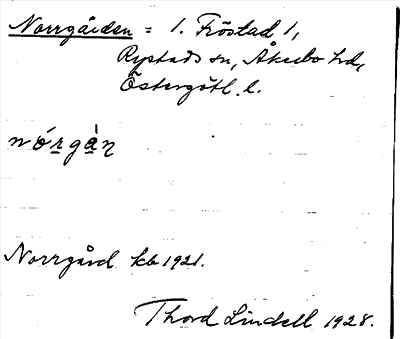 Norrgården = 1. Fröstad 1,
Rystads sn, Åkerbo hd,
Östergötl. l.
nórgàn
Norrgård kb 1921.
Thord Lindell 1928.